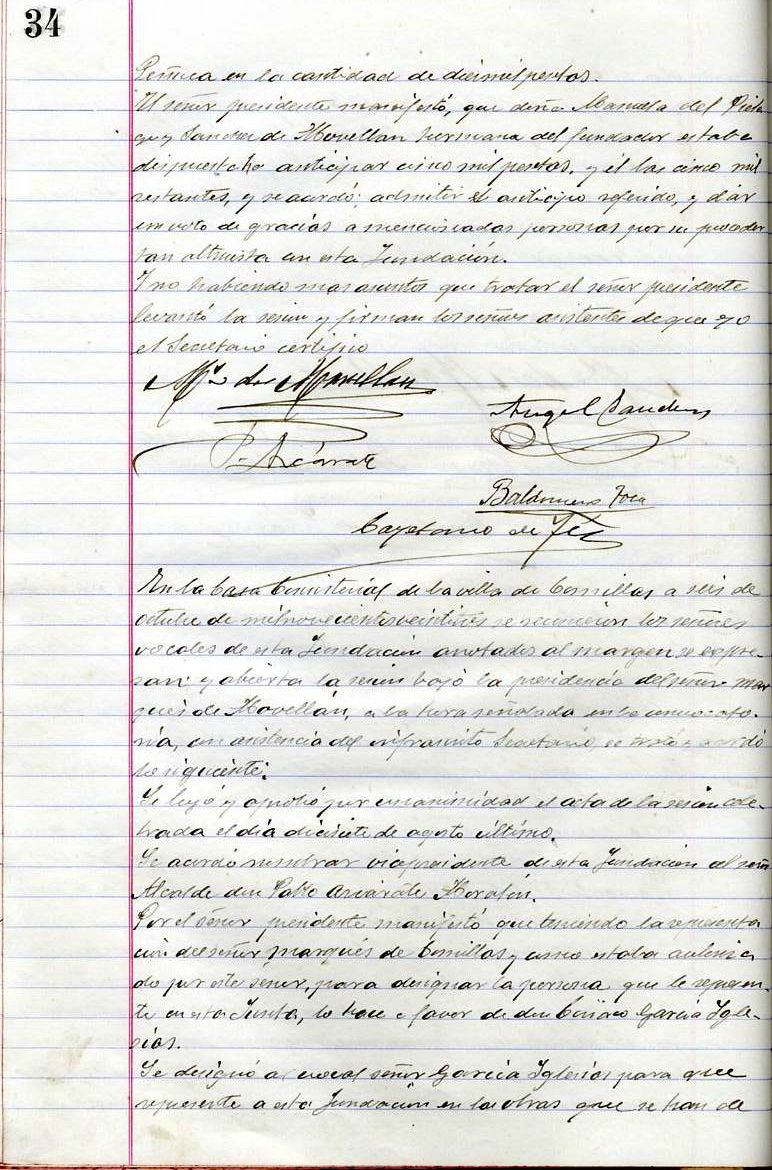 34
en la cantidad de diez mil pesetas.
El señor presidente manifestó, que doña Manuela del Piéla-
go y Sanchez de Movellan hermana del fundador estaba
dispuesta ha anticipar cinco mil pesetas, y él las cinco mil
restantes, y se acordó: admitir el anticipo referido, y dar
un voto de gracias a mencionadas personas por su proceder
tan altruista en esta Fundación.
Y no habiendo mas asuntos que tratar el señor presidente
levantó la sesion y firman los señores asistentes de que yo
el Secretario certifico
Mqs de Movellan
Angel Sanchez
P. Arcárate
Baldomero
Cayetano de
En la Casa Consistorial de la villa de Comillas a seis de
octubre de mil novecientos veintitres se reunieron los señores
vocales de esta Fundación anotados al margen se expre-
san y abierta la sesion bajó la presidencia del señor mar
qués de Movellán, a la hora señalada en la convocato-
ria, con asistencia del infrascrito Secretario, se trató y acordó
lo siguiente:
Se leyó y aprobó por unanimidad el acta de la sesion cele-
brada el día diecisiete de agosto último.
Se acordó nombrar vicepresidente de esta Fundación al señor
Alcalde don Pablo
Por el señor presidente manifestó que teniendo la representa
ción del señor marqués de Comillas y como estaba autoriza
do por este señor, para designar la persona que le represen-
te en esta Junta, lo hace a favor de don Ciriaco García Igle-
sias.
Se designó al vocal señor García Iglesias para que
represente a esta Fundación en las obras que se han de